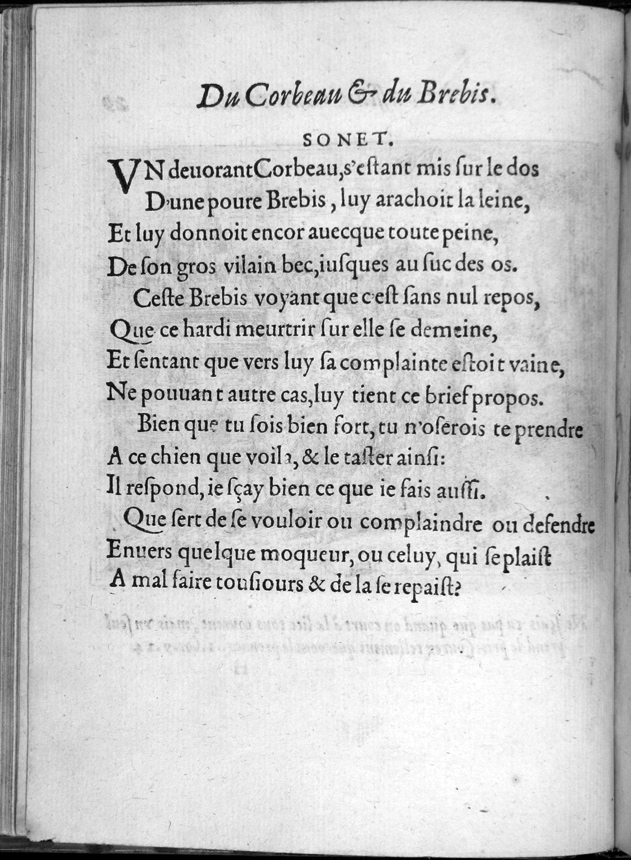 Du Corbeau & du Brebis.
SONET.
VN deuorant Corbeau, s'estant mis sur le dos
D'une poure Brebis, luy arachoit la leine,
Et luy donnoit encor auecque toute peine,
De son gros vilain bec, iusques au suc des os.
Ceste Brebis voyant que c'est sans nul repos,
Que ce hardi meurtrir sur elle se demeine,
Et sentant que vers luy sa complainte estoit vaine,
Ne pouuant autre cas, luy tient ce brief propos.
Bien que tu sois bien fort, tu n'oserois te prendre
A ce chien que voila, & le taster ainsi:
Il respond, ie sçay bien ce que ie fais aussi.
Que sert de se vouloir ou complaindre ou defendre
Enuers quelque moqueur, ou celuy, qui se plaist
A mal faire tousiours & de la se repaist?